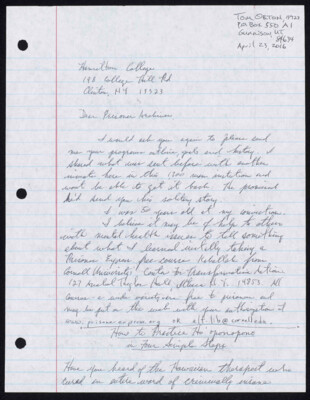 Tom
P.O. Box 550 A1
Gunnison, UT
84634
April 23, 2016
Hamilton College
198 College Hill Rd
Clinton, NY 13323
Dear Prisoner Archivist,
I would ask you again to please send
me your programs outline, goals and history. I
shared what was sent before with another
inmate here in this 1200 man institution and
will not be able to get it back. The promised
he'd send you his writing story.
I was years old at my conviction.
I believe it may be of help to others
with mental health issues to tell something
about what I learned recently taking a
Prisoner Express free course from
Cornell University's Center for Transformative Action
127 Anabel Taylor Hall, Ithaca N.Y. 14853. All
courses are free to prisoners and
may be put on the with your authorization it
was, or
How to Practice Ho'oponopono
in Four Simple Steps
Have you heard of the Hawaiian therapist who
cured an entire ward of criminally insane